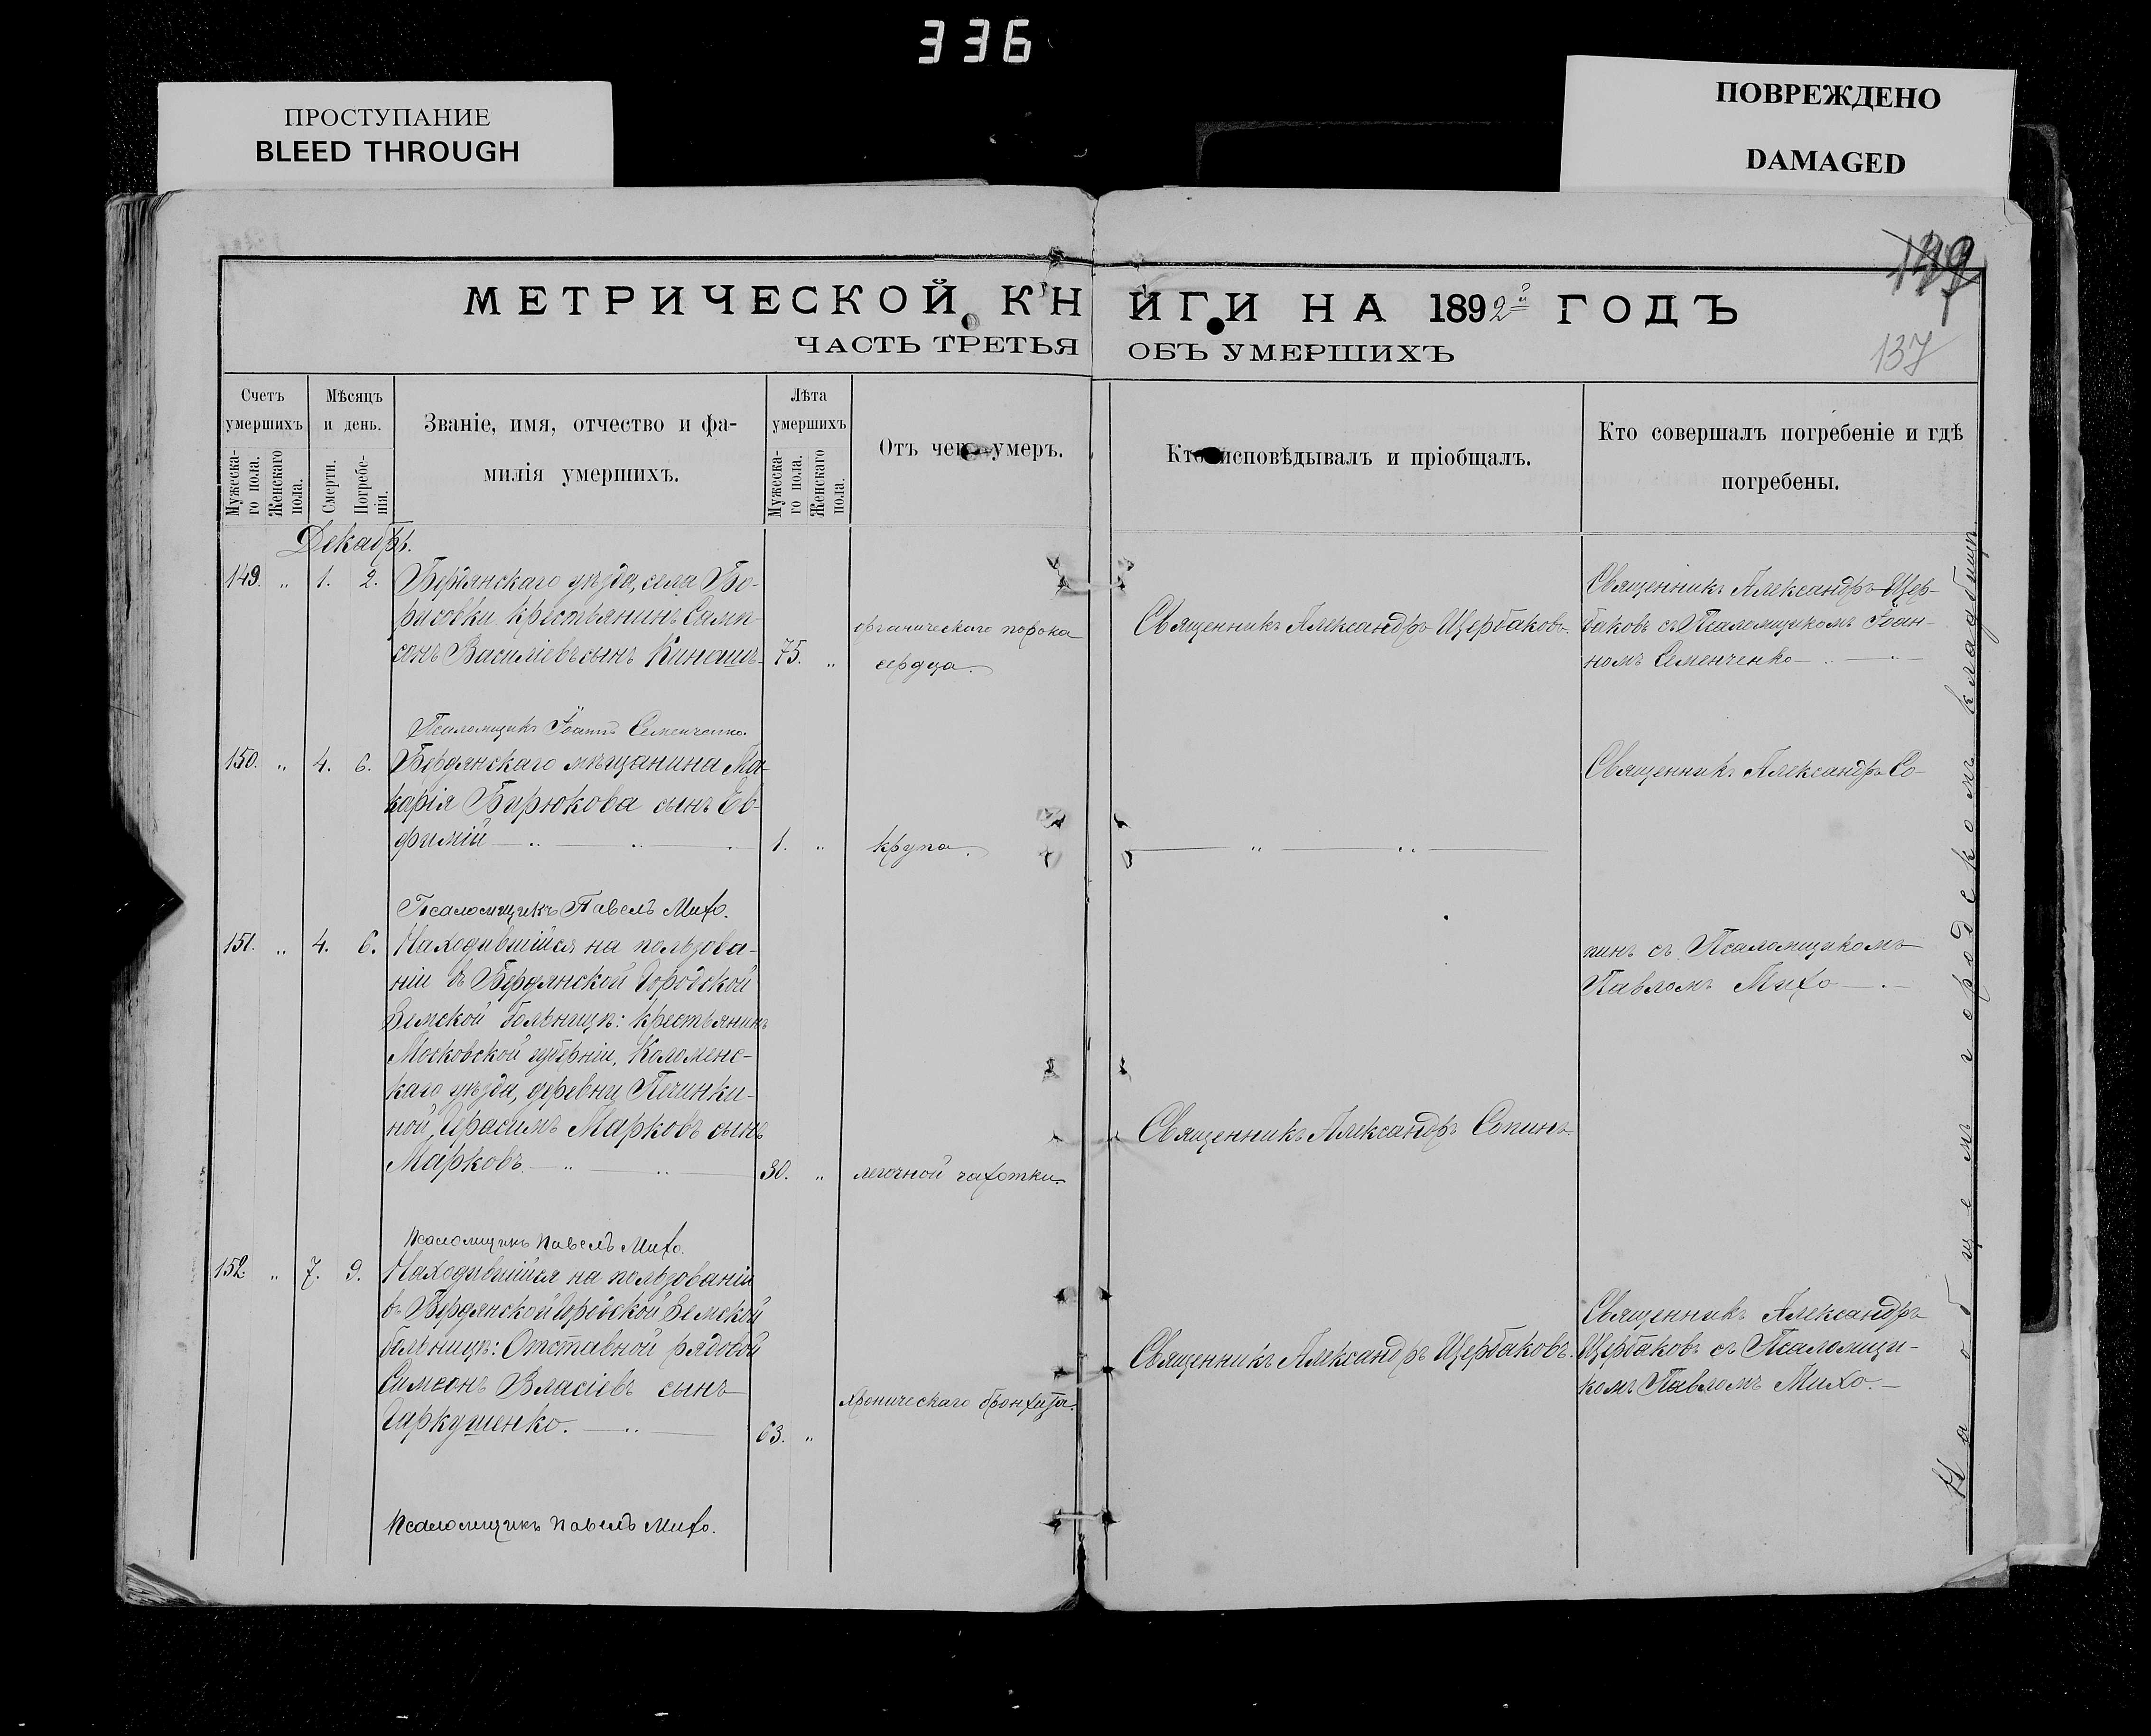 336
ПРОСТУПАНИЕ
BLEED THROUGH
ПОВРЕЖДЕНО
DAMAGED
149
137
МЕТРИЧЕСКОЙ КНИГИ НА 1892й ГОДЪ
ЧАСТЬ ТРЕТЬЯ ОБЪ УМЕРШИХЪ
Счетъ умершихъ
Мужеска-го пола.
Женскаго пола.
Мѣсяцъ и день.
Смерти.
Погребе-нія.
Званіе, имя, отчество и фа-
милія умершихъ.
Лѣта умершихъ
Мужеска-го пола.
Женскаго пола.
Отъ чего умеръ.
Кто исповѣдывалъ и пріобщалъ.
Кто совершалъ погребеніе и гдѣ
погребены.
Декабрь.
149. „ 1. 2. Бердянскаго уѣзда, села Бо-
рисовки крестьянинъ Самп-
сонъ Василіевъ сынъ Кинашъ 75. „
органическаго порока
сердца.
Священникъ Александръ Щербаковъ.
Священникъ Александръ Щер-
баковъ съ Псаломщикомъ Іоан-
номъ Семенченко
Псаломщикъ Іоаннъ Семенченко.
150. „ 4. 6. Бердянскаго мѣщанина Ма-
карія Бирюкова сынъ Ев-
фимій 1. „ крупа.
Священникъ Александръ Со-
Псаломщикъ Павелъ Михо.
151. „ 4. 6. Находившійся на пользова-
ніи въ Бердянской Городской
Земской больницѣ: крестьянинъ
Московской губерніи, Коломенс-
каго уѣзда, деревни Печинки-
ной, Герасимъ Марковъ сынъ
Марковъ 30. „ легочной чахотки.
Священникъ Александръ Сопинъ.
пинъ съ Псаломщикомъ
Павломъ Михо
Псаломщикъ Павелъ Михо.
152. „ 7. 9. Находившійся на пользованіи
въ Бердянской Городской Земской
больницѣ: Отставной рядовой
Симеонъ Власіевъ сынъ
Гаркушенко. 63. „
хроническаго бронхита.
Священникъ Александръ Щербаковъ.
Священникъ Александръ
Щербаковъ съ Псаломщи-
комъ Павломъ Михо.
Псаломщикъ Павелъ Михо.
На общемъ городскомъ кладбищѣ.